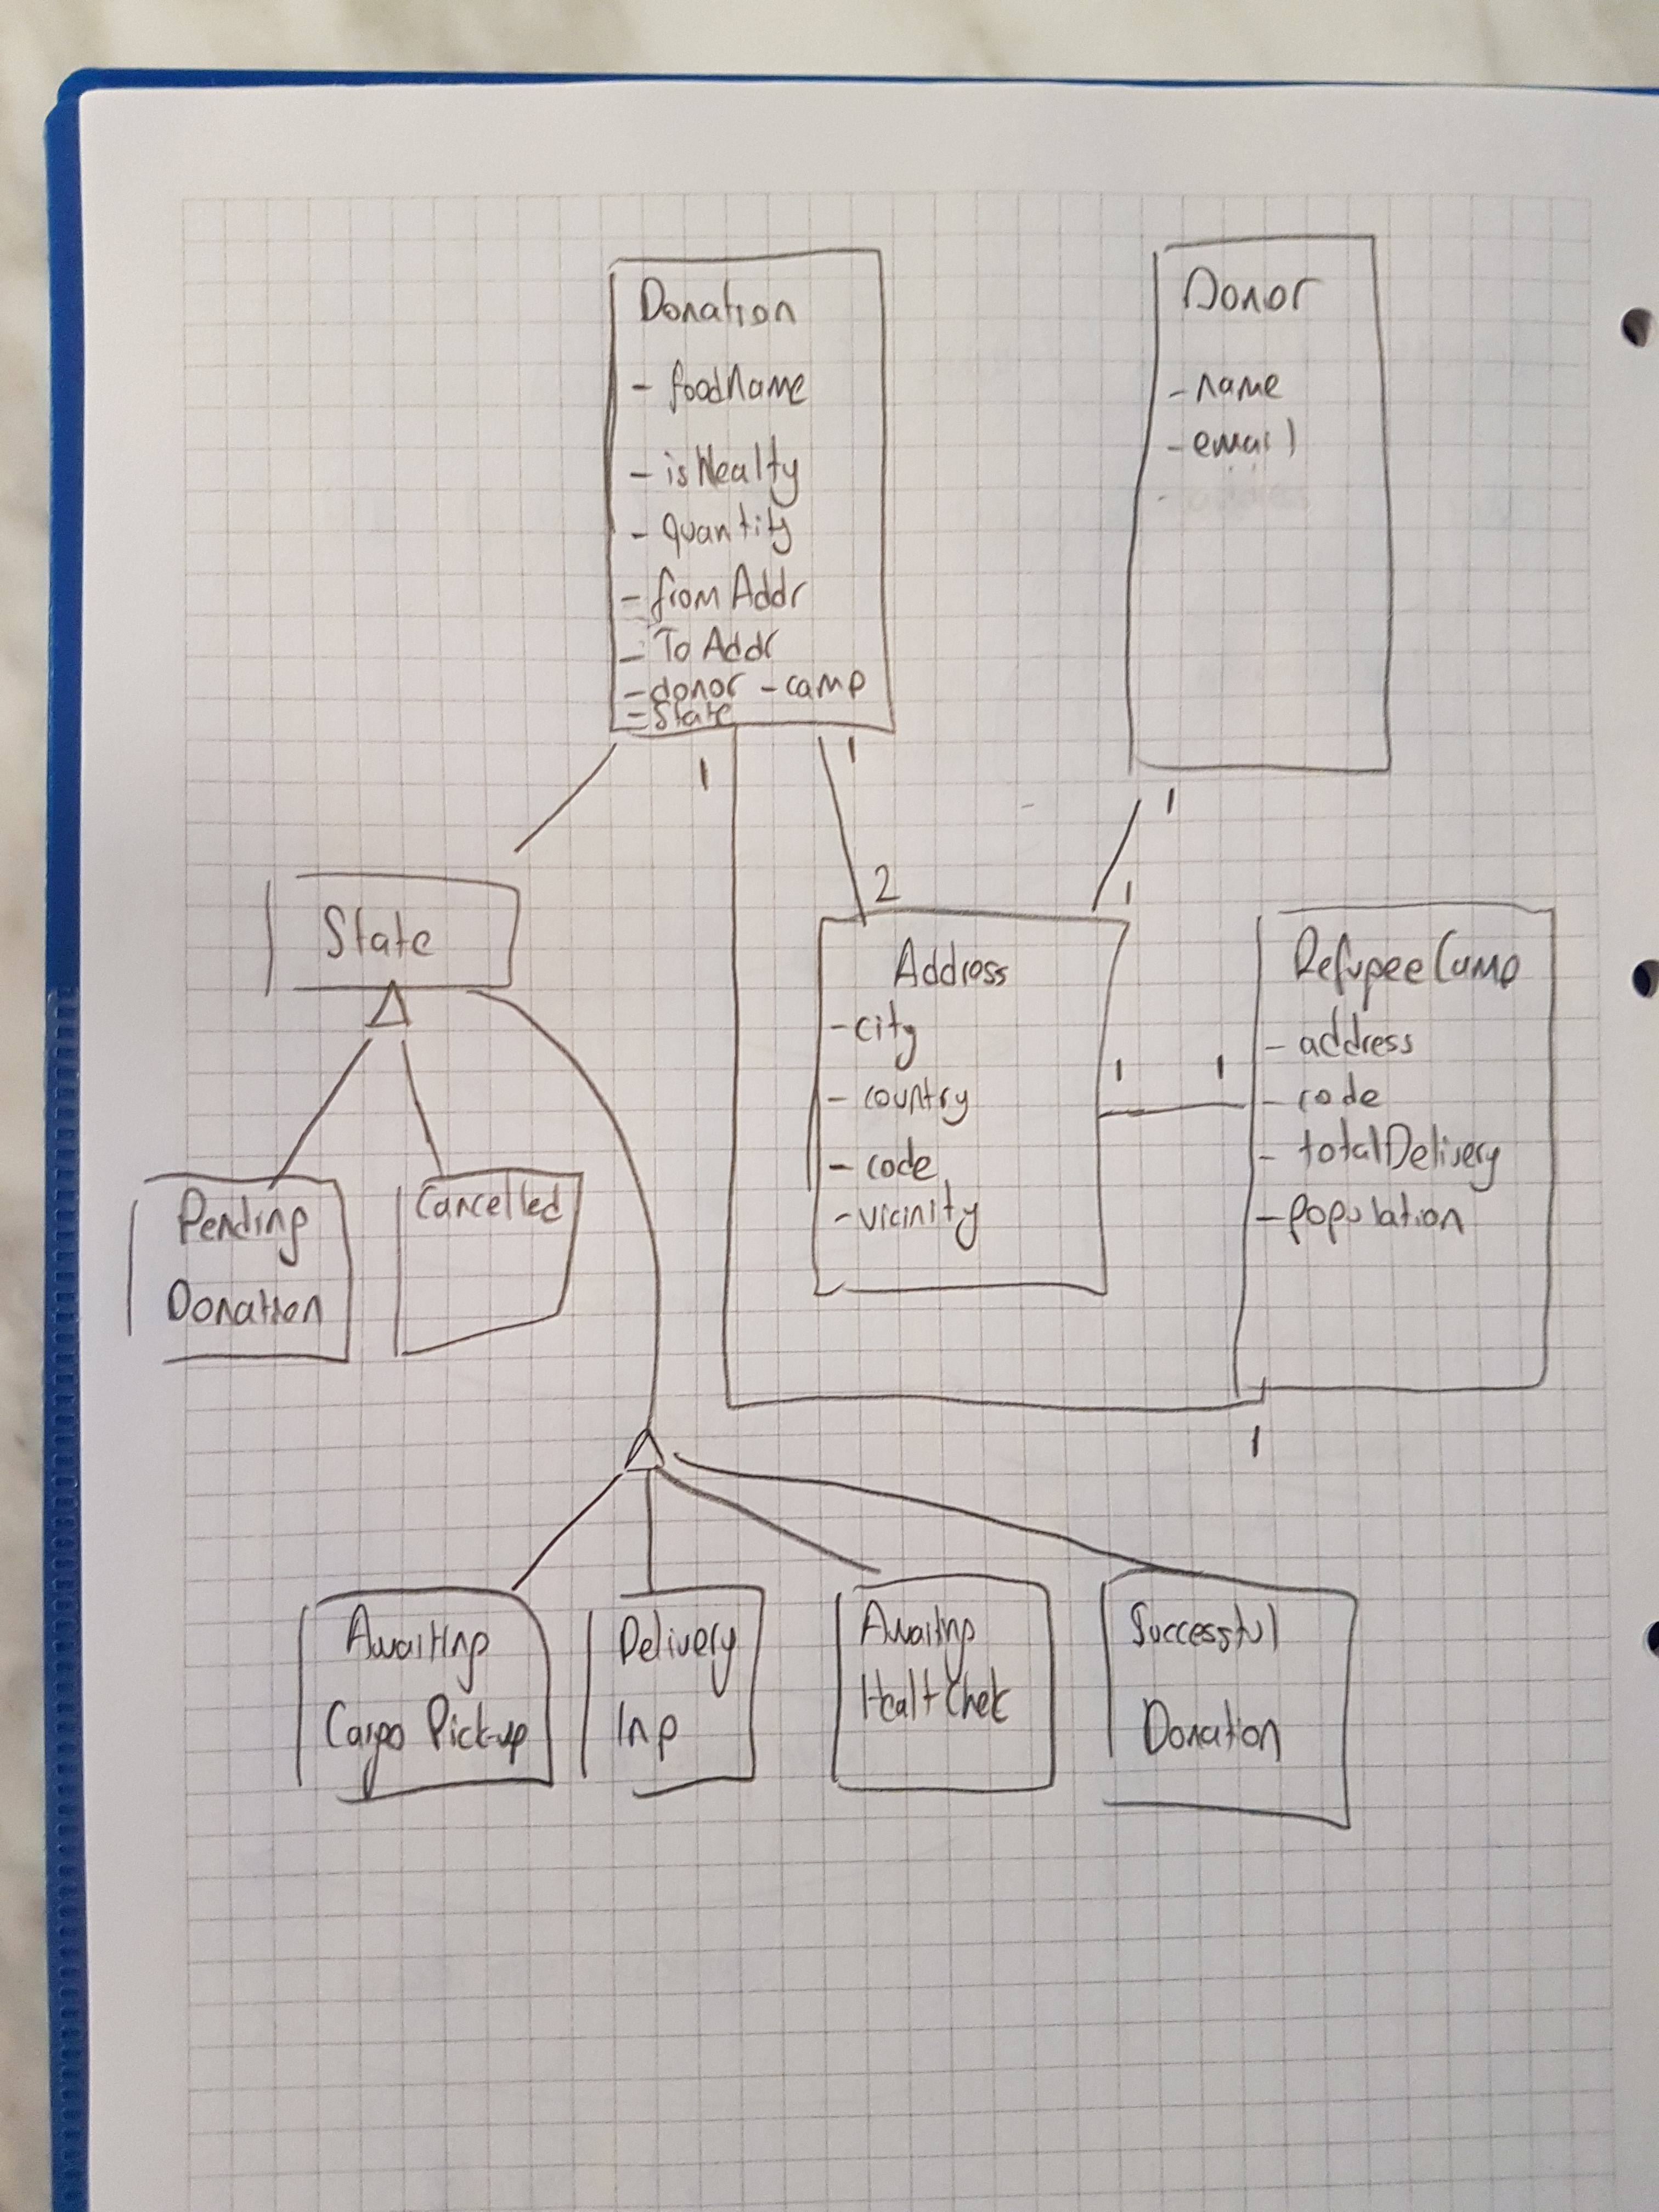 Donation
- foodName
- isHealty
- quantity
- from Addr
- To Addr
- donor - camp
- State
Donor
- name
- email
1
1
1
2
1
State
Address
- city
- country
- code
- vicinity
1
1
RefugeeCamp
- address
- code
- totalDelivery
- population
Pending
Donation
Cancelled
1
Awaiting
Cargo Pick-up
Delivery
Inp
Awaiting
Healt Chek
Successful
Donation